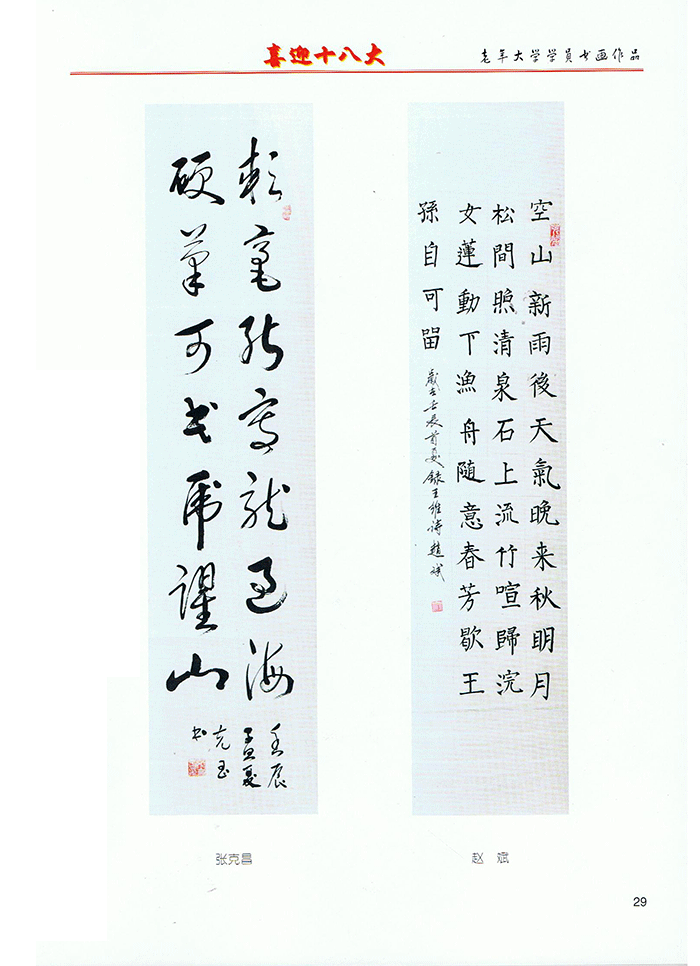 喜迎十八大
老年大学学员书画作品
軟毫能寫龍過海
硬筆可 虎望山
壬辰
孟夏
克
书
空山新雨後天氣晚来秋明月
松間照清泉石上流竹喧歸浣
女蓮動下漁舟随意春芳歇王
孫自可留
歲在壬辰首夏錄王維诗趙斌
张克昌
赵 斌
29